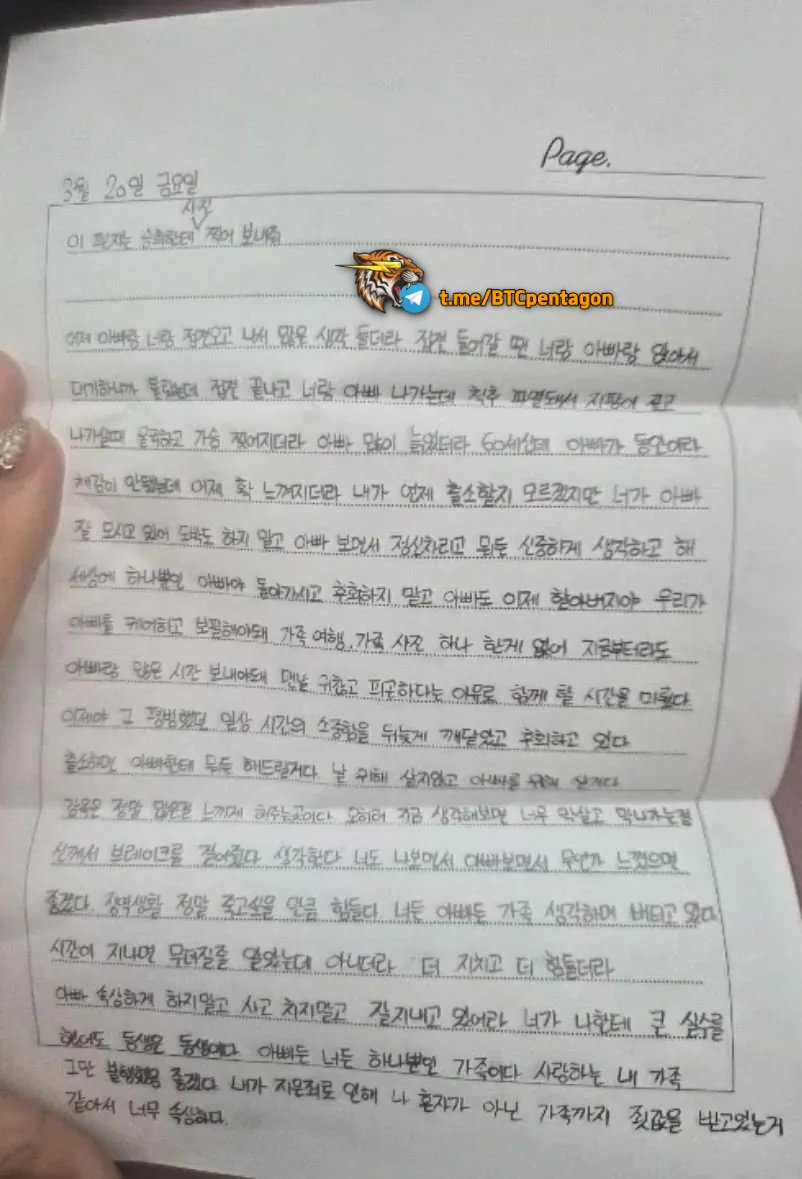 Page.
3월 20일 금요일
사진
이 편지는 승희한테 찍어 보내줘
t.me/BTCpentagon
어제 아빠랑 너랑 접견오고 나서 많은 생각 들더라 접견 들어갈 땐 너랑 아빠랑 앉아서
대기하니까 몰랐는데 접견 끝나고 너랑 아빠 나가는데 척추 파열돼서 지팡이 짚고
나가실때 울컥하고 가슴 찢어지더라 아빠 많이 늙었더라 60세신데 아빠가 동안이라
체감이 안됐는데 어제 확 느껴지더라 내가 언제 출소할지 모르겠지만 너가 아빠
잘 모시고 있어 도박도 하지 말고 아빠 보면서 정신차리고 뭐든 신중하게 생각하고 해
세상에 하나뿐인 아빠야 돌아가시고 후회하지 말고 아빠도 이제 할아버지야 우리가
아빠를 케어하고 보필해야돼 가족 여행, 가족 사진 하나 한게 없어 지금부터라도
아빠랑 많은 시간 보내야돼 맨날 귀찮고 피곤하다는 이유로 함께 할 시간을 미뤘다
이제야 그 평범했던 일상 시간의 소중함을 뒤늦게 깨달았고 후회하고 있다
출소하면 아빠한테 뭐든 해드릴거다 날 위해 살지않고 아빠를 위해 산거다
감옥은 정말 많은걸 느끼게 해주는곳이다 오히려 지금 생각해보면 너무 막살고 막나가는걸
신께서 브레이크를 걸어줬다 생각한다 너도 나보면서 아빠보면서 무언가 느꼈으면
좋겠다. 징역생활 정말 죽고싶을 만큼 힘들다 너든 아빠든 가족 생각하며 버티고 있다
시간이 지나면 무뎌질줄 알았는데 아니더라 더 지치고 더 힘들더라
아빠 속상하게 하지말고 사고 치지말고 잘지내고 있어라 너가 나한테 큰 실수를
했어도 동생은 동생이다 아빠든 너든 하나뿐인 가족이다 사랑하는 내 가족
그만 불행했음 좋겠다 내가 지은죄로 인해 나 혼자가 아닌 가족까지 죗값을 받고있는거
같아서 너무 속상하다.